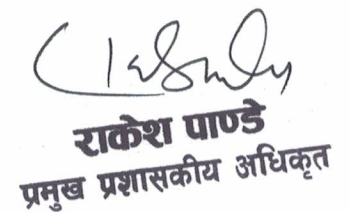 राकेश पाण्डे
प्रमुख प्रशासकीय अधिकृत